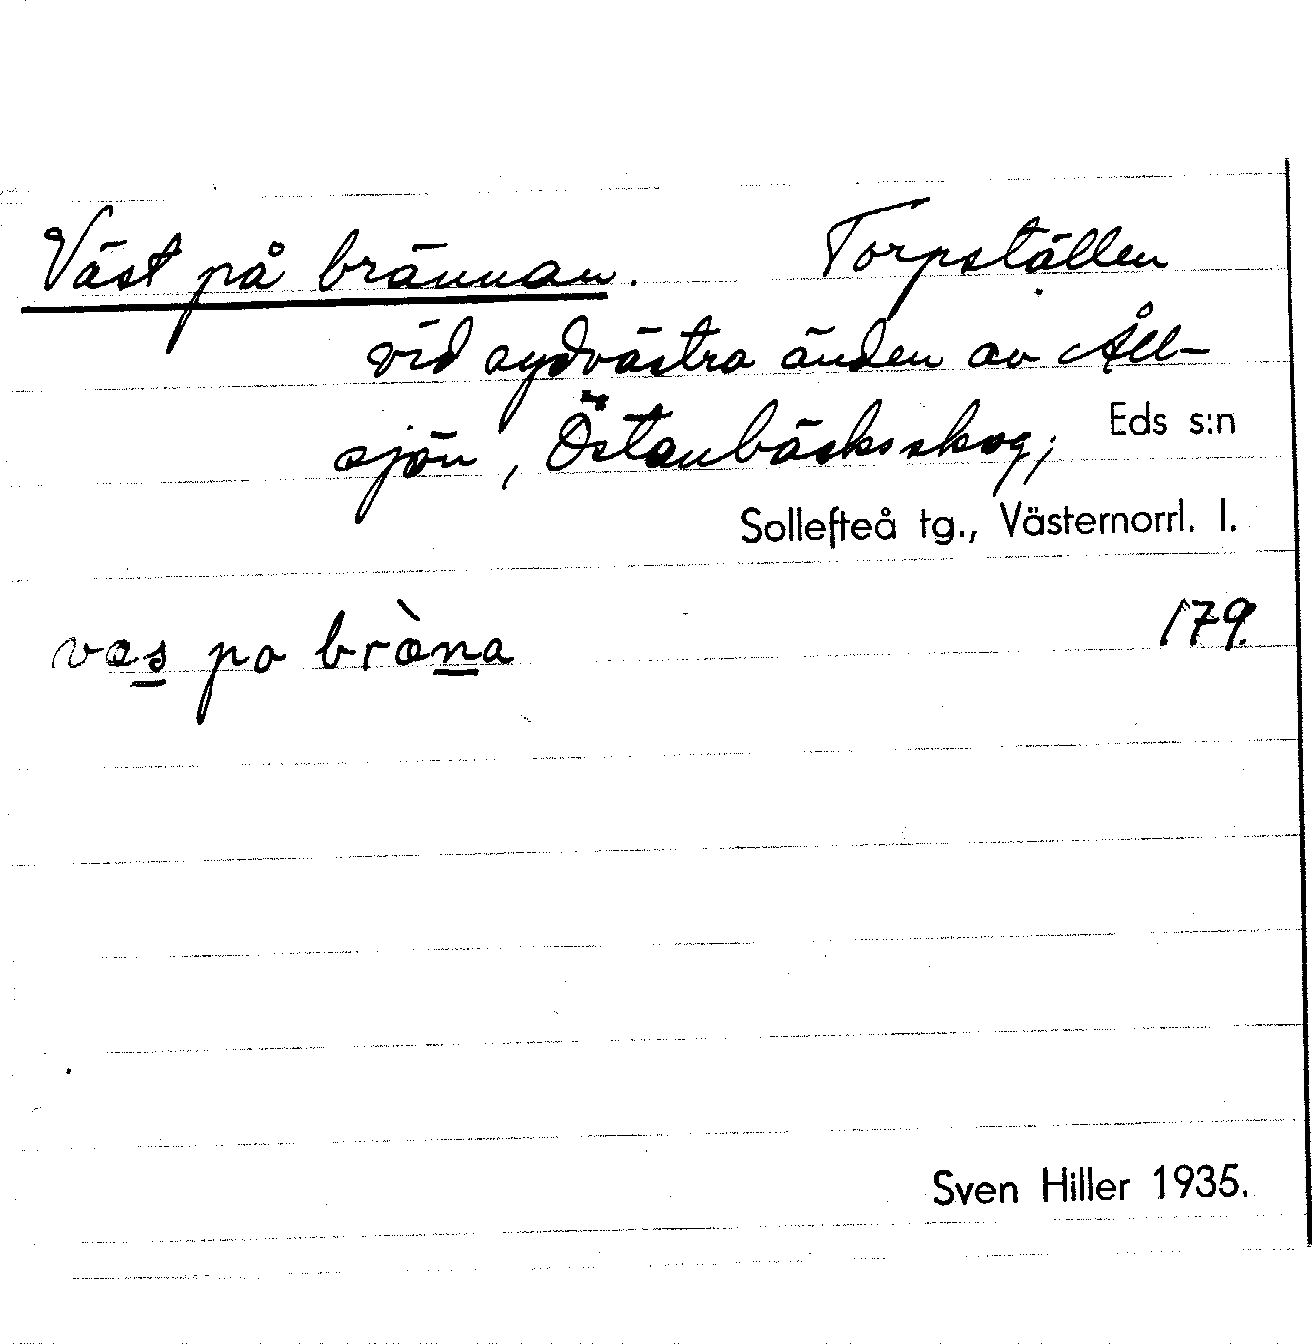 Väst på brännan. Torpställen
vid sydvästra änden av Åll-
sjön, Östanbäcksskog; Eds s:n
Sollefteå tg., Västernorrl. l.
væs po bræ̀na 179.
Sven Hiller 1935.